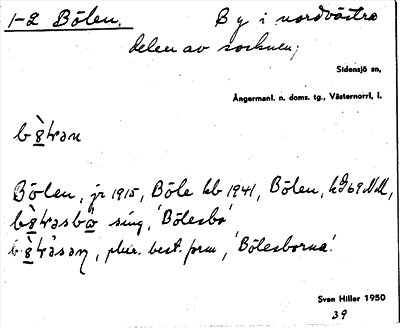 1-2 Bölen. By i nordvästra
delen av socknen;
Sidensjö sn,
Ångermanl. n. doms. tg., Västernorrl. l.
Bölen, jr 1915, Böle kb 1941, Bölen,
sing. 'Bölesbo'
, plur. best. form, 'Bölesborna'.
Sven Hiller 1950
39